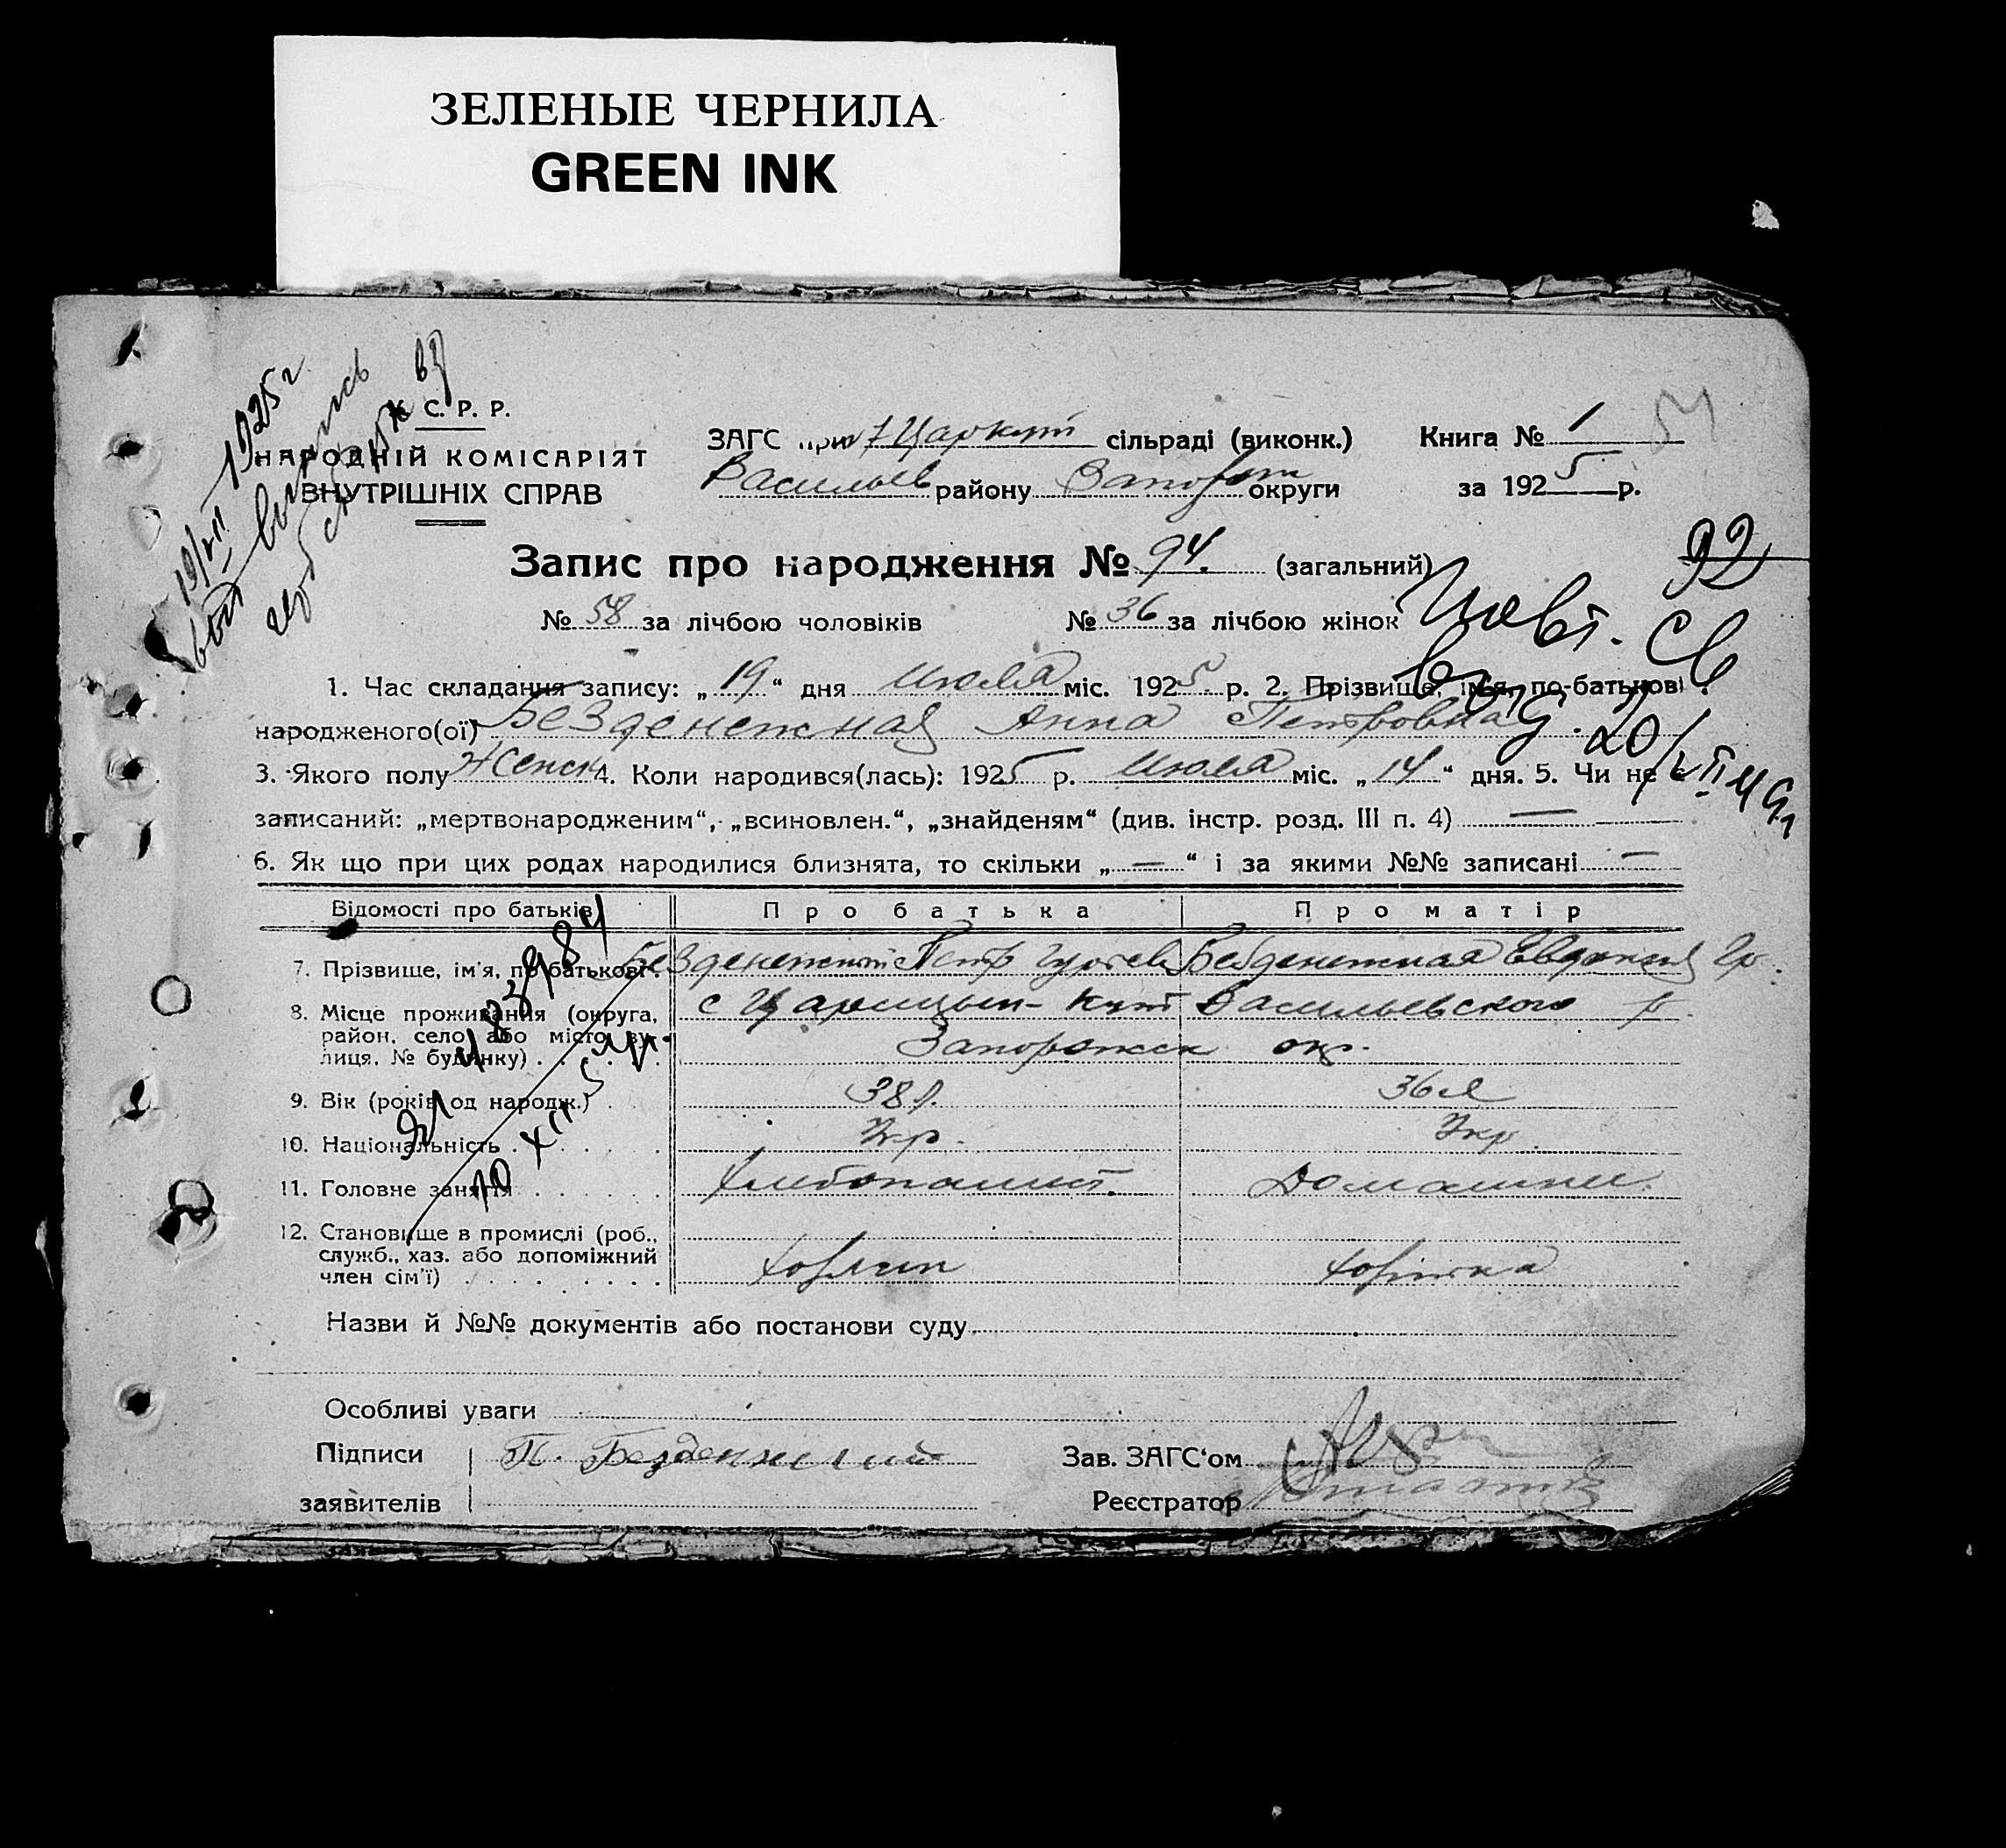 ЗЕЛЕНЫЕ ЧЕРНИЛА
GREEN INK
19/VII 1925 г.
С. Р. Р.
НАРОДНІЙ КОМІСАРІЯТ
ВНУТРІШНІХ СПРАВ
ЗАГС при Царкут сільраді (виконк.) Книга № 1
Васильев району округи за 1925 р.
92
Запис про народження № 94. (загальний)
№ 58 за лічбою чоловіків № 36 за лічбою жінок
1. Час складання запису: „19“ дня Июля міс. 1925 р. 2. Прізвище, ім'я, по-батькові
народженого(ої) Безденежная Анна Петровна
3. Якого полу Женск 4. Коли народився(лась): 1925 р. Июля міс. „14“ дня. 5. Чи не є
записаний: „мертвонародженим“, „всиновлен.“, „знайденям“ (див. інстр. розд. III п. 4) —
6. Як що при цих родах народилися близнята, то скільки „—“ і за якими №№ записані —
Відомості про батьків Про батька Про матір
7. Прізвище, ім'я, по батькові Безденежний Петр Безденежная Евдокия Гр.
8. Місце проживання (округа, район, село або місто, вулиця, № будинку) с Царицын-Кут Васильевского р.
Запорожск окр.
9. Вік (років од народж.) 38 л. 36 л
10. Національність Укр. Укр.
11. Головне заняття Хлибопашит. Домашни.
12. Становище в промислі (роб., служб., хаз. або допоміжний член сім'ї)
Назви й №№ документів або постанови суду
Особливі уваги
Підписи П. Безденжний Зав. ЗАГС‘ом
заявителів Реєстратор